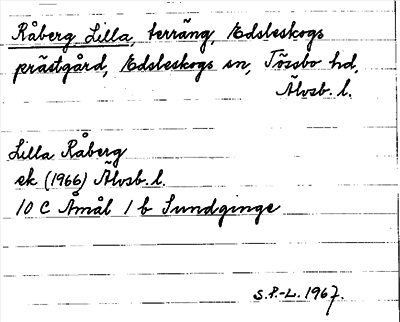 Råberg, Lilla, terräng, Edsleskogs
prästgård, Edsleskogs sn, Tössbo hd,
Älvsb. l.
Lilla Råberg
ek (1966) Älvsb. l.
10 C Åmål 1 b Sundginge
S.P.-L. 1967.